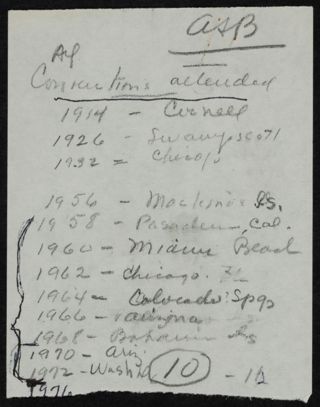 ASB
Conventions attended
1914 - Cornell
1926 - Swampscott
1932 = Chicago
1956 - Mackinac Is.
1958 - Pasadena, Cal.
1960 - Miami Beach
1962 - Chicago
1964 - Colorado Spgs
1966 - Arizona
1968 - Bahama Is
1970 - Ariz
1972 - Wash
10
1976